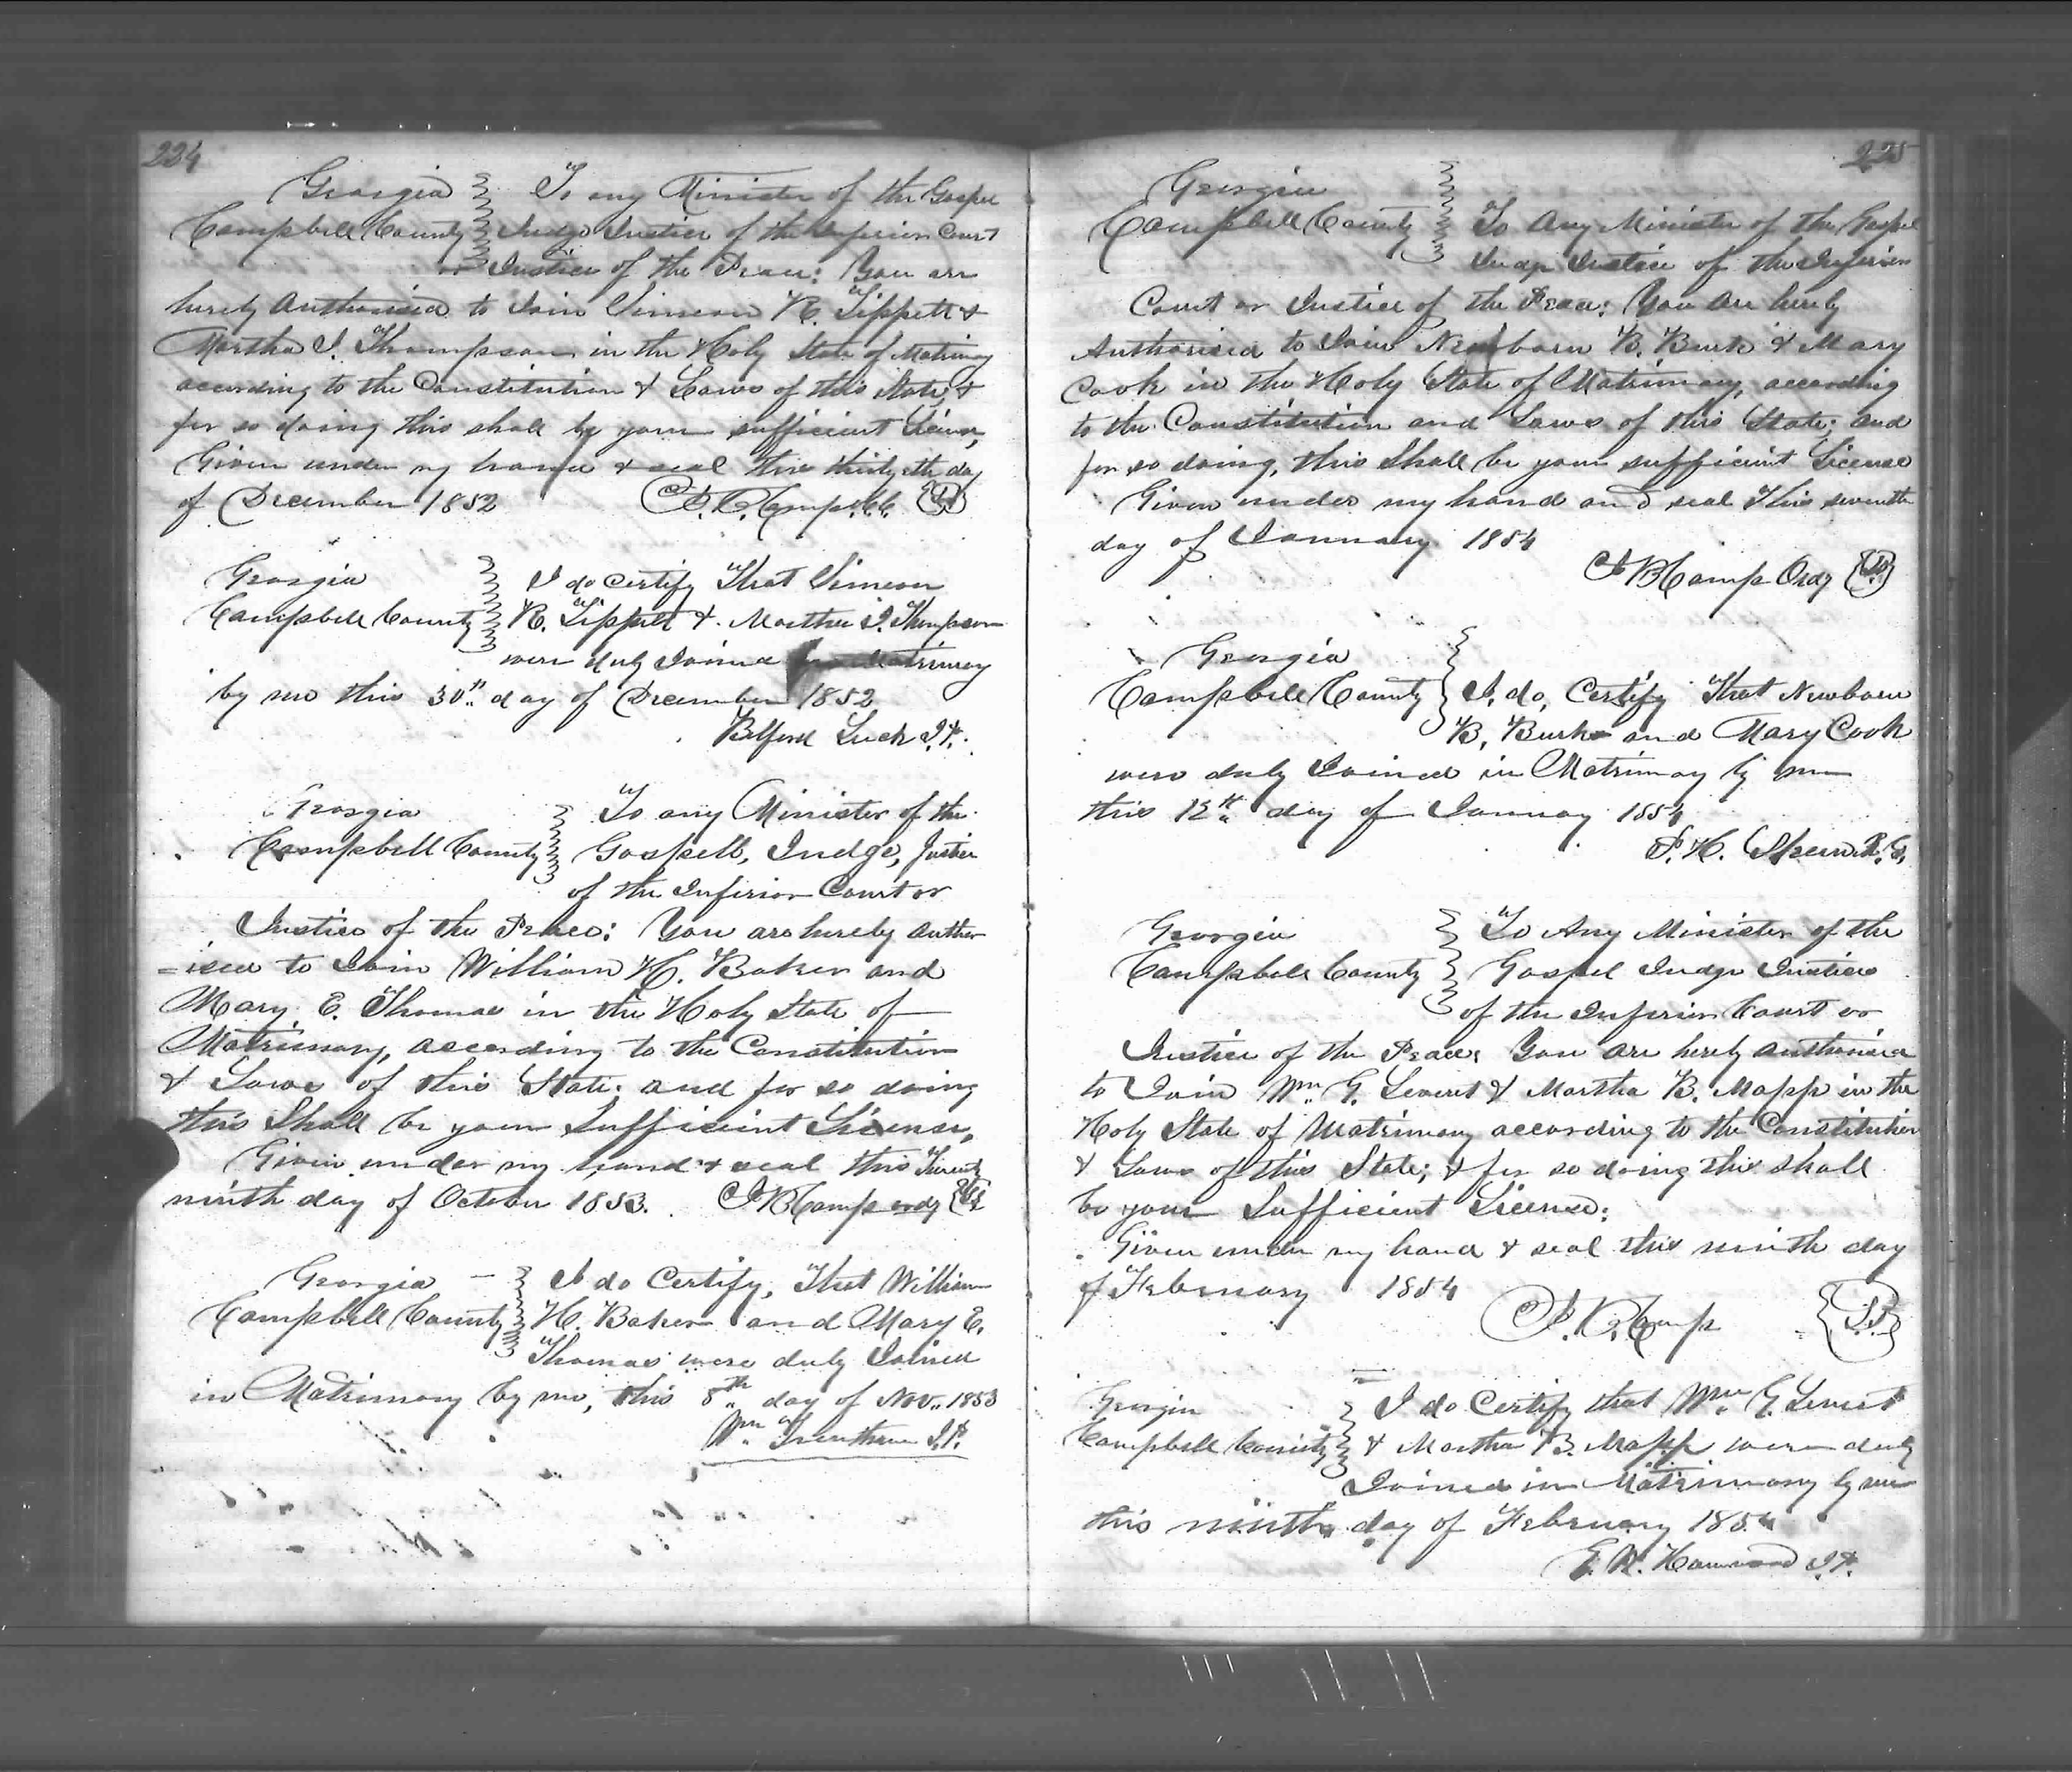 224
Georgia To any Minister of the Gospel
Campbell County Judge Justice of the Inferior Court
or Justice of the Peace: You are
hereby Authorised to Join Simeon R. Tippett &
Martha J. Thompson in the Holy State of Matrimony
according to the Constitution & Laws of this State, &
for so doing this shall be your sufficient License,
Given under my hand & seal this thirtyeth day
of December 1852
Georgia I do Certify That Simeon
Campbell County R. Tippett & Martha J. Thompson
were duly Joined Matrimony
by me this 30th day of December 1852
Luck J.P.
Georgia To any Minister of the
Campbell County Gospell, Judge, Justice
of the Inferior Court or
Justice of the Peace: You are hereby Author
=ised to Join William H. Baker and
Mary E. Thomas in the Holy State of
Matrimony, according to the Constitution
& Laws of this State: and for so doing
this Shall be your Sufficient License,
Given under my hand & seal this Twenty
ninth day of October 1853. J B Camp ordy L.S.
Georgia I do Certify, That William
Campbell County H. Baker and Mary E.
Thomas were duly Joined
in Matrimony by me, this 8th day of Nov. 1853
Wm J.P.
225
Georgia
Campbell County To Any Minister of the Gospel
Judge Justice of the Inferior
Court or Justice of the Peace: You are hereby
Authorised to Join Newborn B. Burke & Mary
Cook in the Holy State of Matrimony, according
to the Constitution and Laws of this State; and
for so doing, this Shall be your sufficient License
Given under my hand and seal This seventh
day of January 1854
J B Camp Ordy L.S.
Georgia
Campbell County I, do, Certify That Newborn
B. Burke and Mary Cook
were duly Joined in Matrimony by me
this 12th day of January 1854
Georgia To Any Minister of the
Campbell County Gospel Judge Justice
of the Inferior Court or
Justice of the Peace; You are hereby authorised
to Join Wm. G. Leveret & Martha B. Mapp in the
Holy State of Matrimony according to the Constitution
& Laws of this State; & for so doing this shall
be your Sufficient License:
Given under my hand & seal this ninth day
of February 1854
J. B. Camp L.S.
Georgia I do Certify that Wm. G. Leveret
Campbell County & Martha B. Mapp were duly
Joined in Matrimony by me
this ninth day of February 1854
J.P.